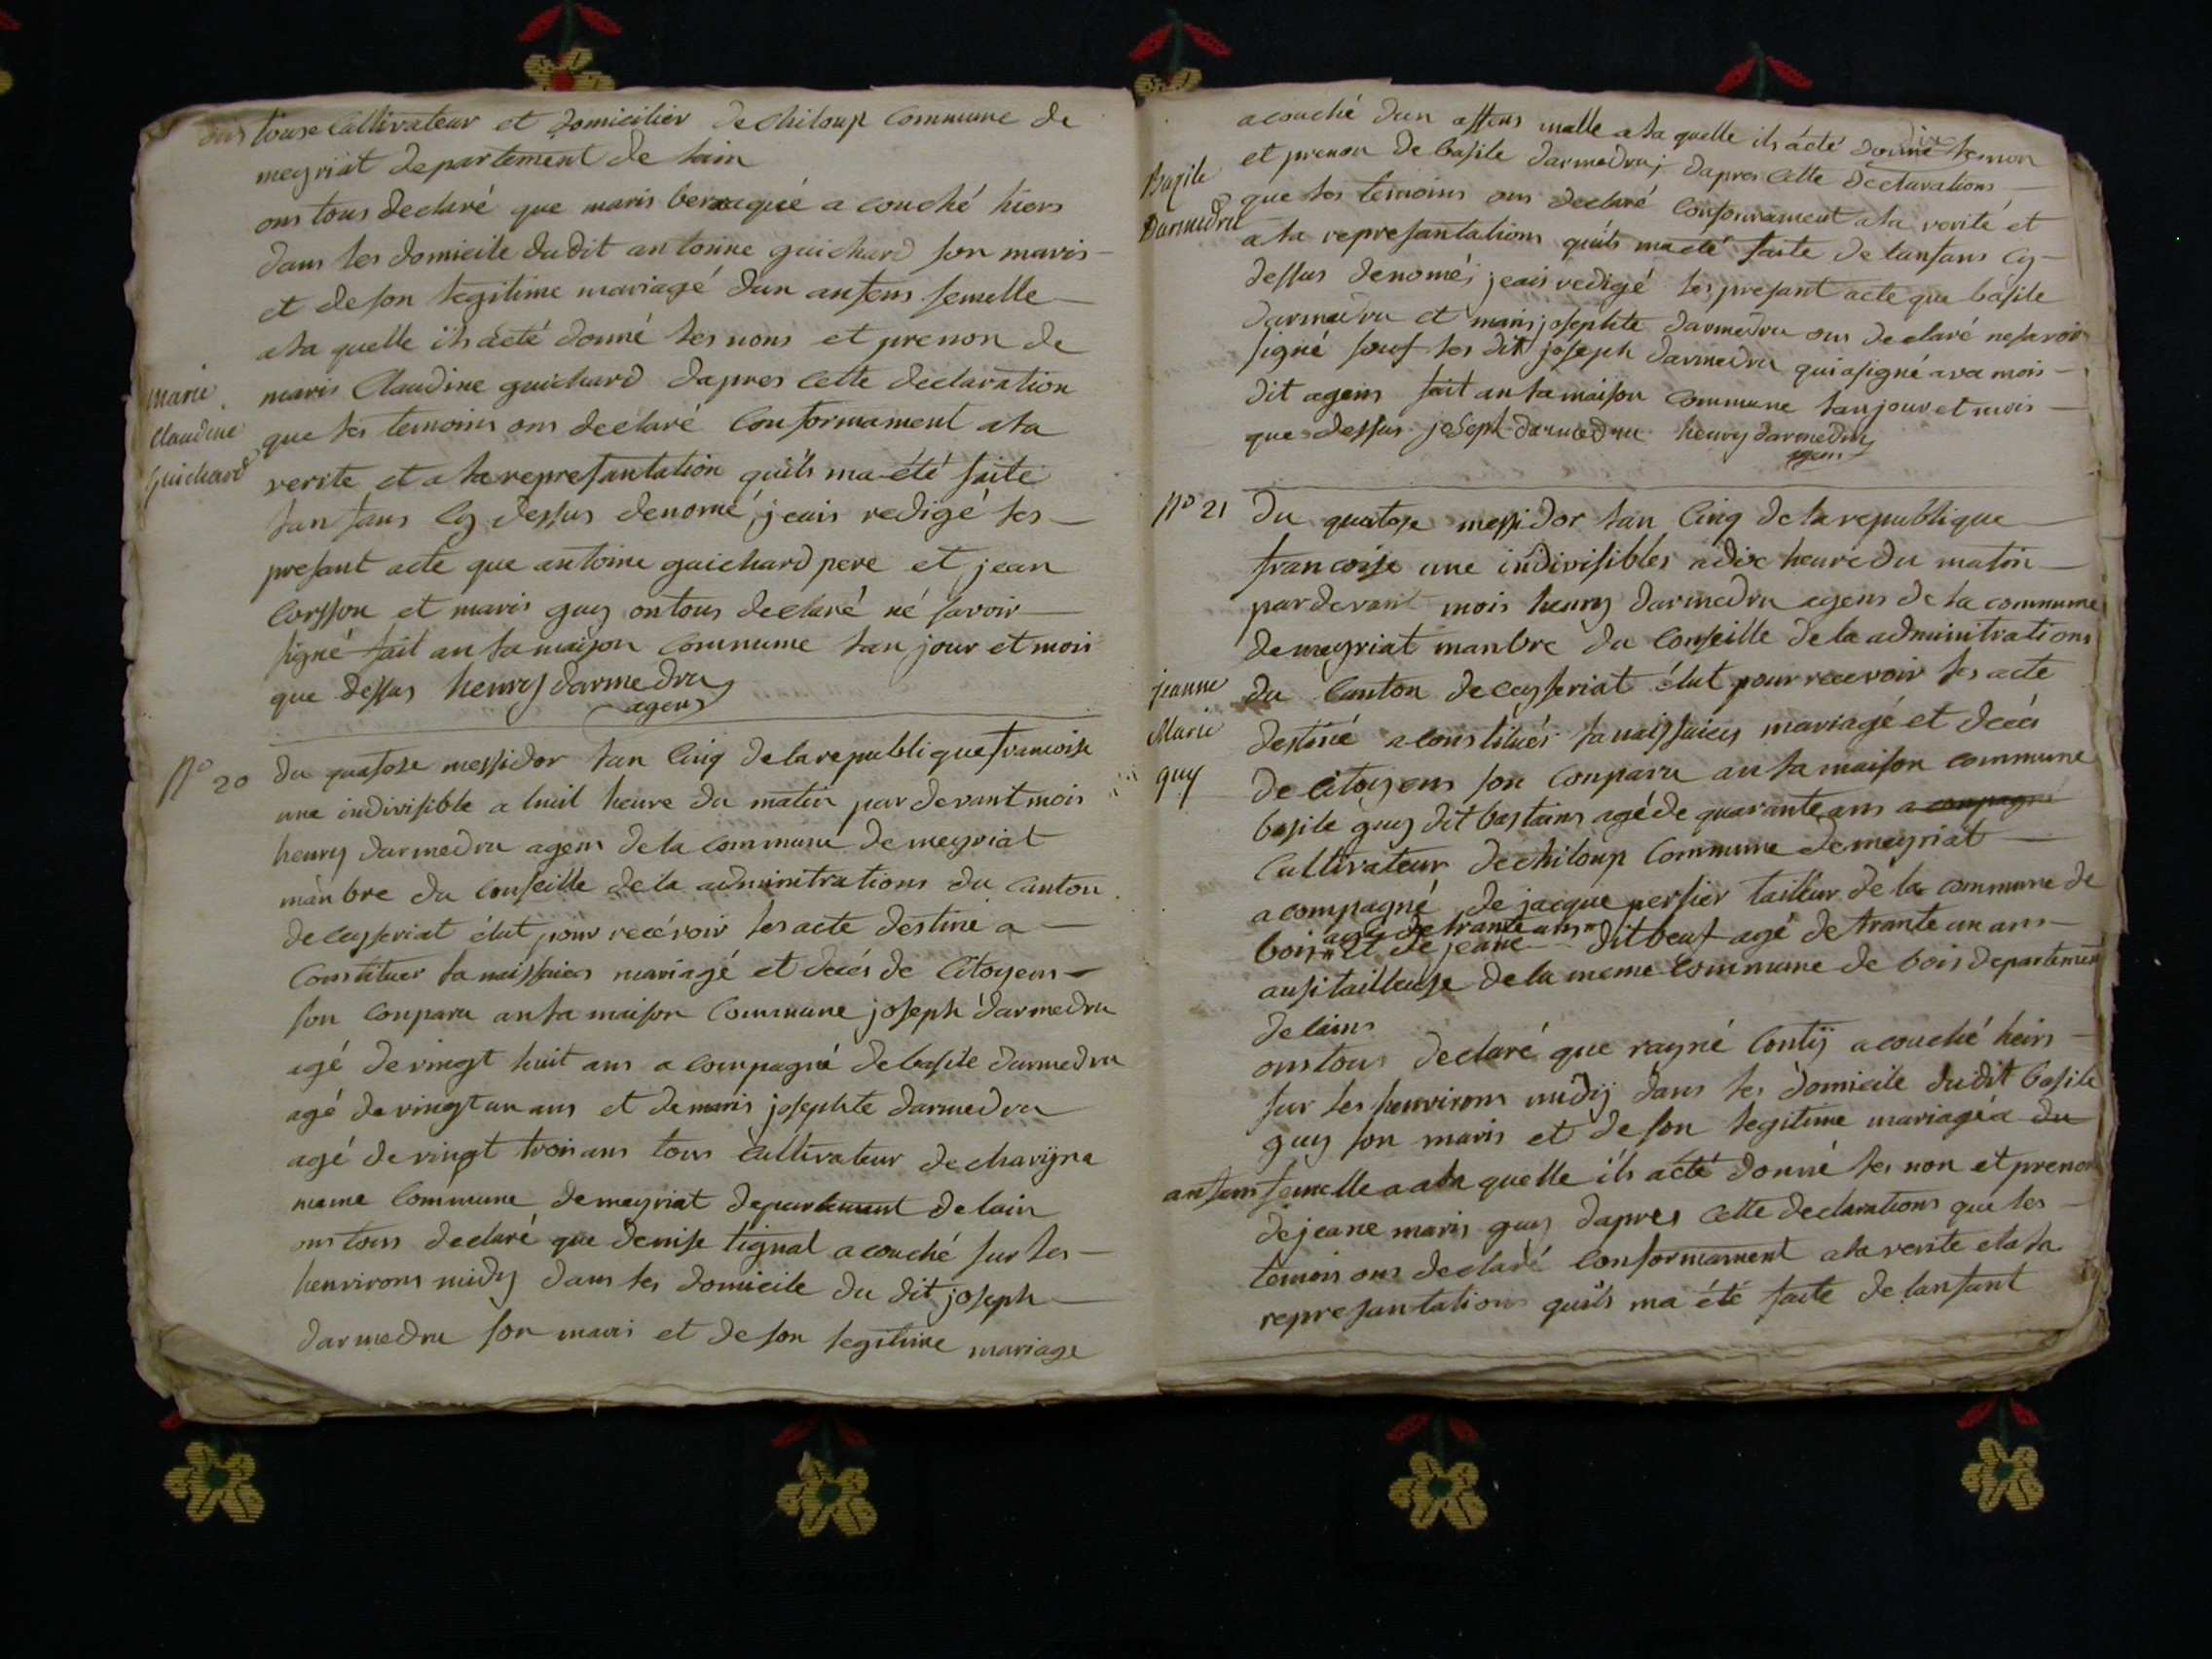 ons touse Cultivateur et domicilier de chiloup commune de
meyriat departement de lain
ons tous declaré que maris berraquié a couché hiers
dans les domicile dudit antoine guichard son maris
et de son legitime mariagé dun anfens femelle
a la quelle ils áeté donné les nons et prenon de
Marie
Claudine
Guichard
maris Claudine guichard dapres cette declaration
que les temoins ons declaré Conformament a la
verite et a la represantation quils ma été faite
lanfans Cy dessus denomé, jeais redigé les
presant acte que antoine guichard pere et jean
Corsson et maris guy on tous declaré né savoir
signé fait an la maison commune lan jour et mois
que dessus henry darmedru
agens
No 20
du quatose messidor lan Cinq de la republique francoise
une indivisible a huit heure du matin par devant mois
henry darmedru agens de la commune de meyriat
manbre du Conseille de la adminitrations du Canton
de ceyseriat élut pour recévoir les acte destiné a
Constituer la naissaices mariagé et decés de Citoyens
son Conparu an la maison Commune joseph darmedru
agé de vingt huit ans a Compagné de basile darmedru
agé de vingt un ans et de maris josephte darmedru
agé de vingt trois ans tous Cultivateur de charijna
meme Commune de meyriat departement de lain
ons tous declaré que denise tignat a couché sur les
henvirons midy dans les domicile du dit joseph
darmedru son maris et de son legitime mariage
acouché dun affens malle a la quelle ils áeté donné le non
Bazile
Darmedru
et prenon de basile darmedru; dapres cette declarations
que les temoins ons declaré Conformament a la verité et
a la represantations quils ma eté faite de lanfans Cy
dessus denomé; jeais redigé les presant acte que basile
darmedru et maris josephte darmedru ons declaré ne savoir
signé souf les dit joseph darmedru qui a signé avec mois
dit agens fait an la maison Commune lan jour et mois
que dessus joseph darmedru henry darmedru
agens
No 21
du quatose messidor lan Cinq de la republique
francoise une indivisibles a dix heure du matin
par devant mois henry darmedru agens de la commune
de meyriat manbre du Conseille de la adminitrations
Jeanne
Marie
guy
du Canton de ceyseriat élut pour recevoir les acte
destiné a constituér la naissaices mariagé et decés
de Citoyens son Conparu an la maison commune
basile guy dit bastains agé de quarante ans a conpagné
Cultivateur de chiloup Commune de meyriat
acompagné de jacque persier tailleur de la commune de
agé de trante ans
bois et de jeane dit beuf agé de trante un ans
ausi tailleuse de la meme Commune de bois departement
de lains
ons tous declaré que rayné Contij a couché heirs
sur les henvirons midij dans les domicile dudit basile
guy son maris et de son legitime mariagéa du
anfens femelle a ala quelle ils acté donné les non et prenon
de jeane maris guy dapres cette declarations que les
temoin ons declaré Conformament a la verite et a la
represantations quils ma été faite de lanfant